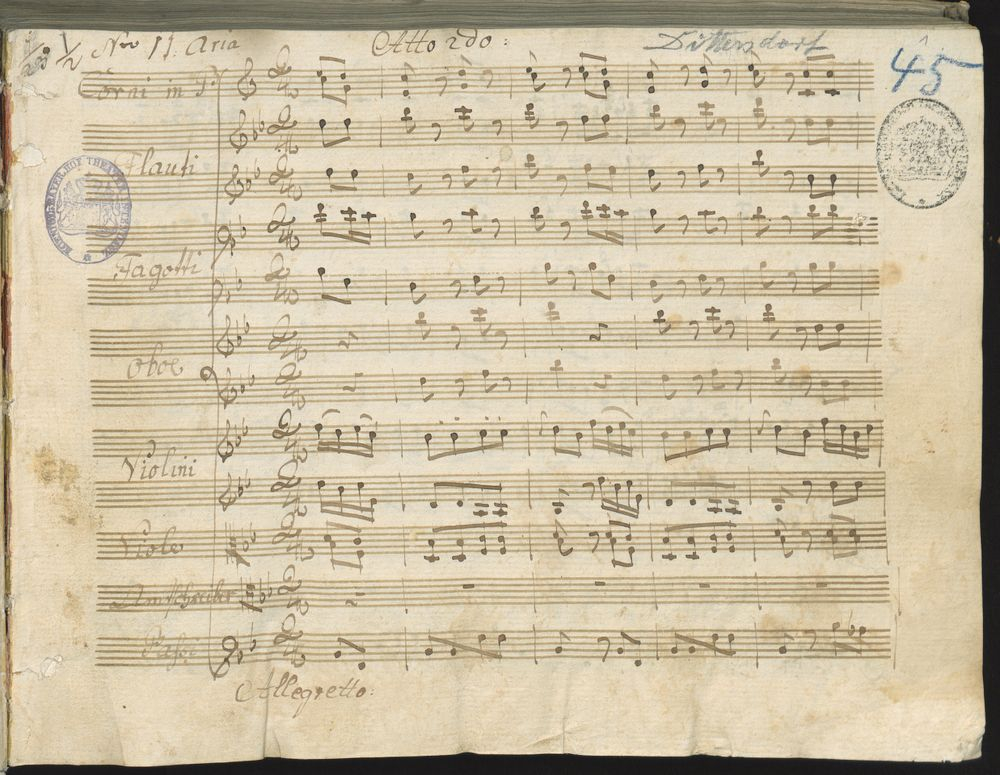 1/2 Nro 11. Aria
Atto 2do:
Dittersdorf
45
Corni in
Flauti
Fagotti
Oboe
Violini
Viole
Bassi
Allegretto: